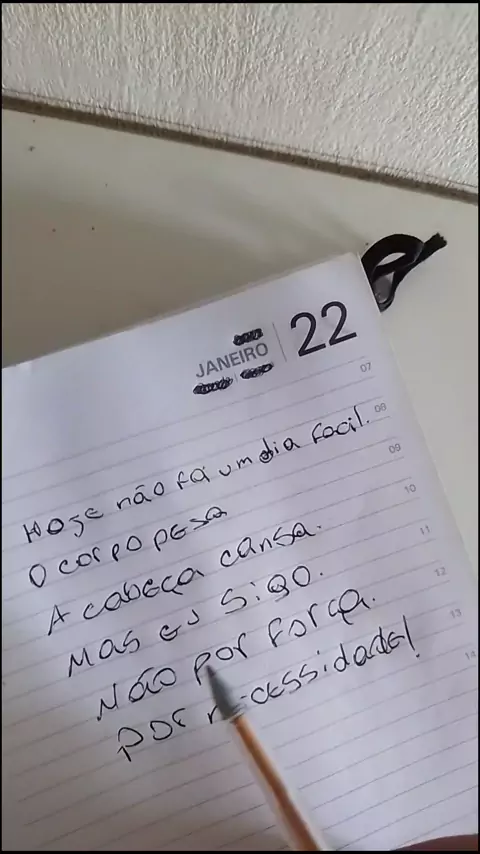 JANEIRO 22
07
Hoje não foi um dia facil. 08
09
O corpo pesa 10
A cabeça cansa. 11
Mas eu sigo. 12
Não por força. 13
por necessidade! 14